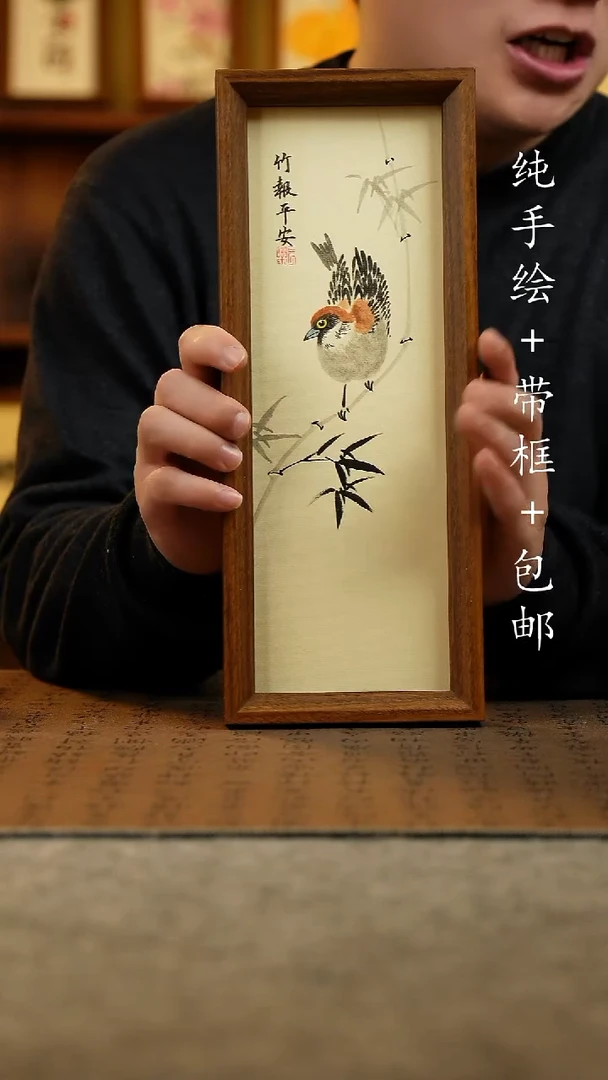 竹報平安
纯手绘+带框+包邮